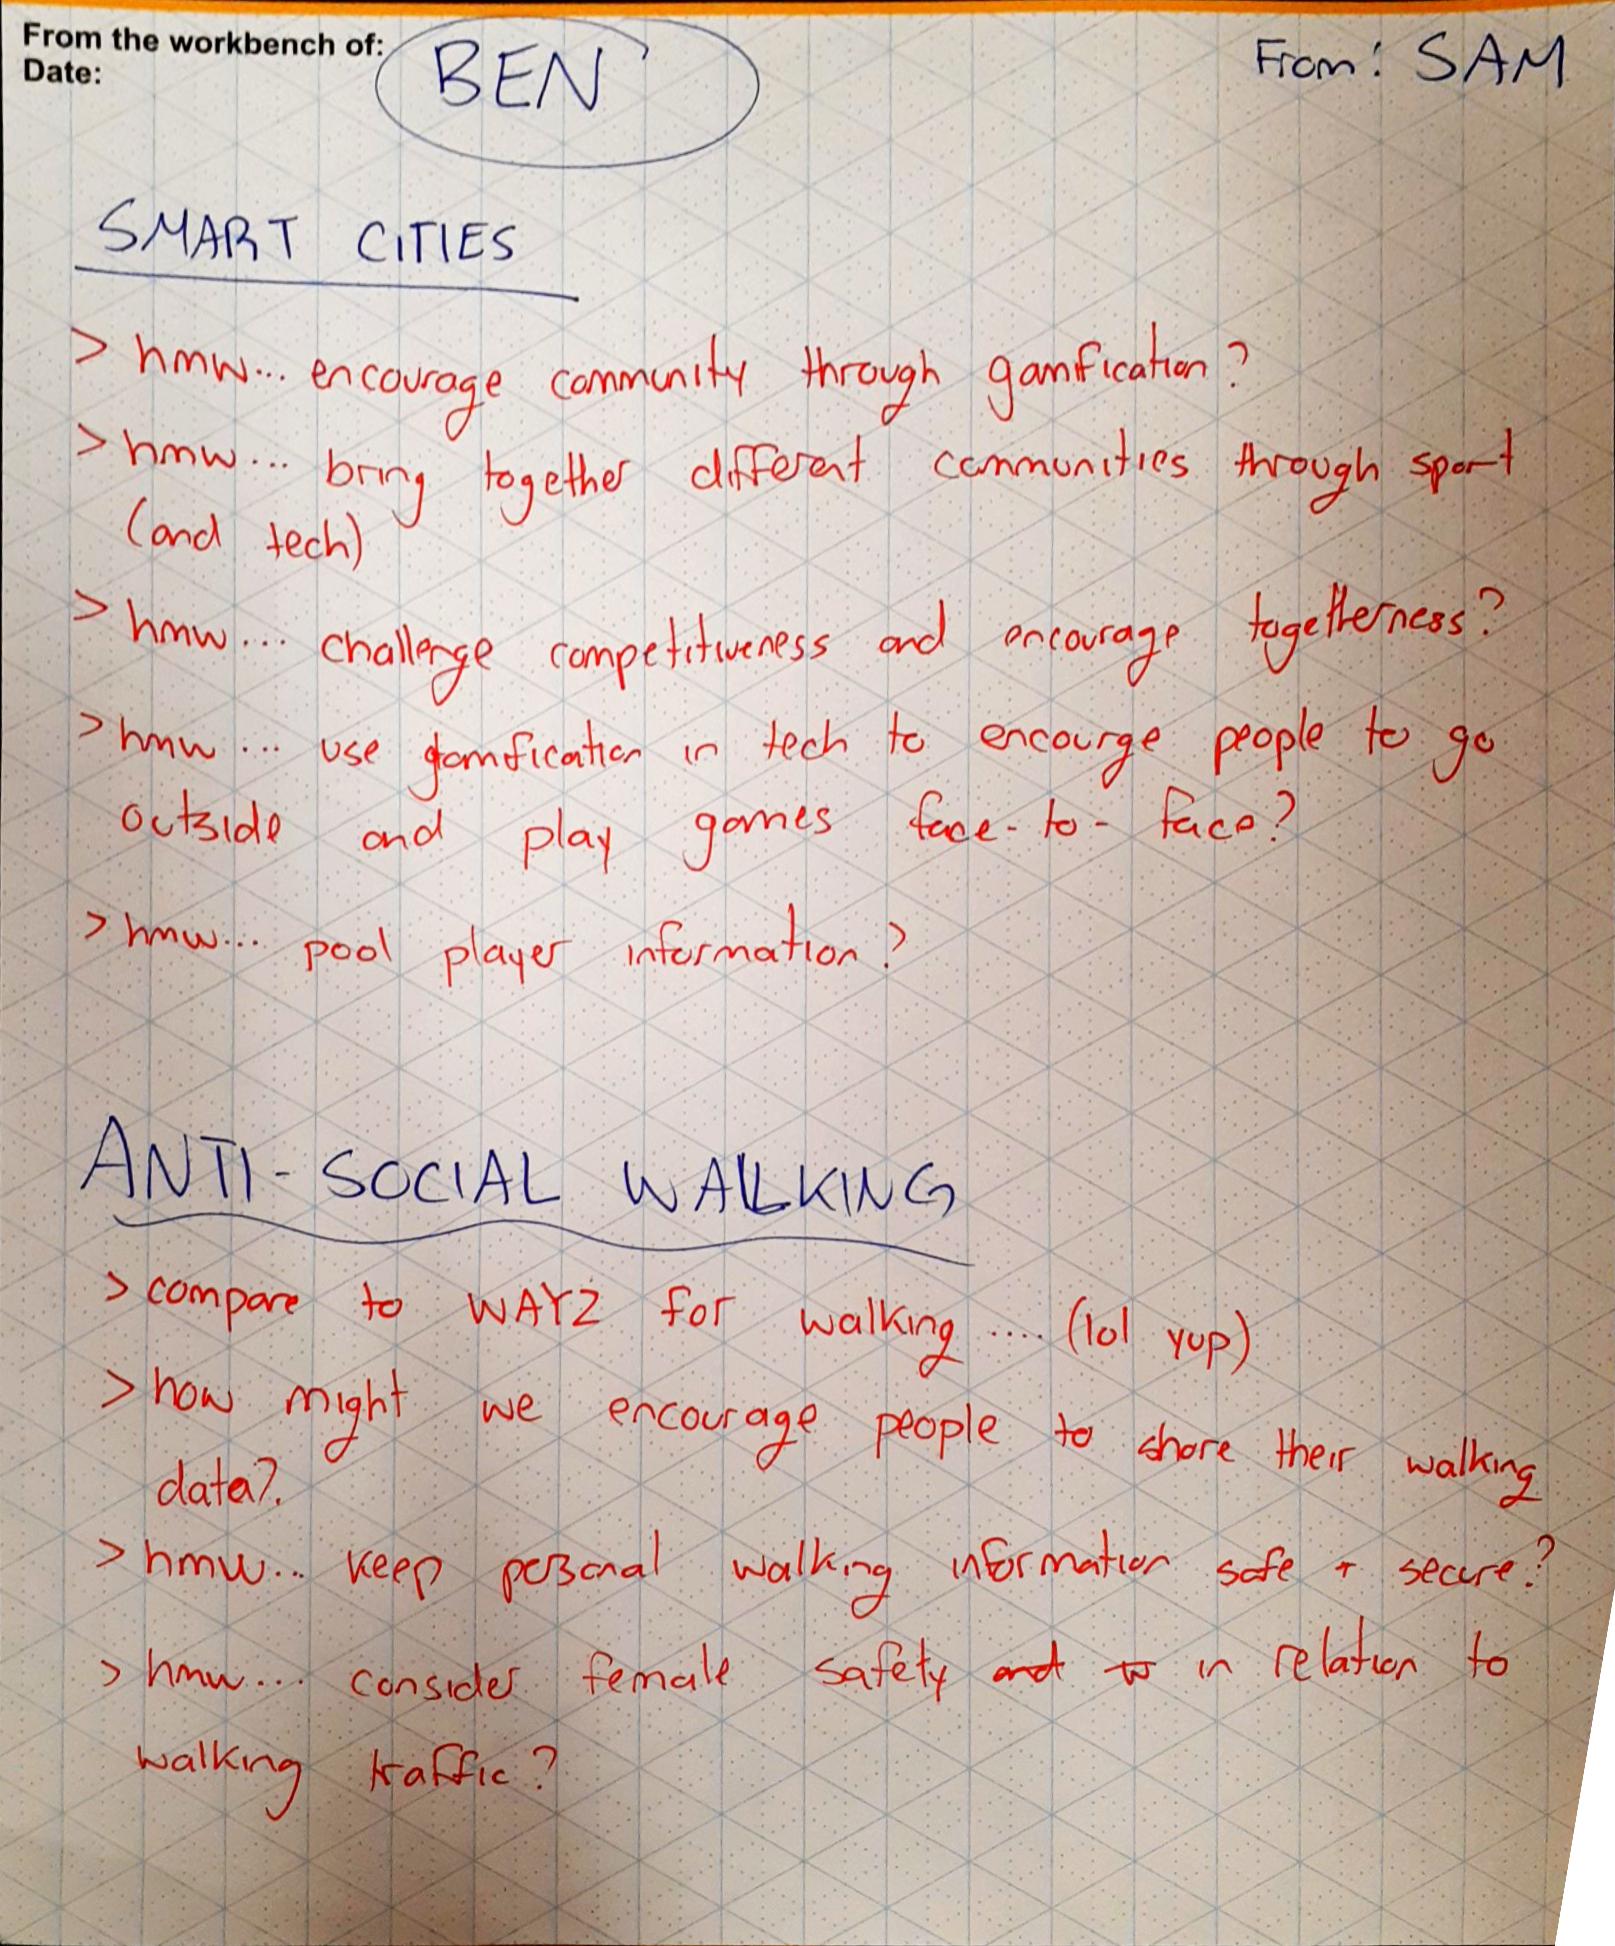 From the workbench of: BEN
From: SAM
Date:
SMART CITIES
> hmw... encourage community through gamfication?
> hmw... bring together different communities through sport
(and tech)
> hmw... challenge competitiveness and encourage togetherness?
> hmw... use gamfication in tech to encourge people to go
outside and play games face-to-face?
> hmw... pool player information?
ANTI-SOCIAL WALKING
> compare to WAYZ for walking .... (lol yup)
> how might we encourage people to share their walking
data?.
> hmw... keep personal walking information safe + secure?
> hmw... consider female safety and to in relation to
walking traffic?